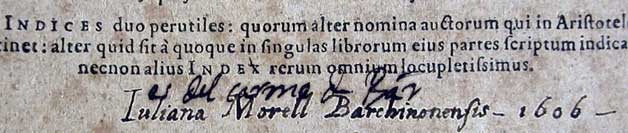 INDICES duo perutiles: quorum alter nomina auctorum qui in Aristotele
tinet: alter quid sit à quoque in singulas librorum eius partes scriptum indica
necnon alius INDEX rerum omnium locupletissimus.
es del carme de Bar
Iuliana Morell Barchinonensis - 1606 -